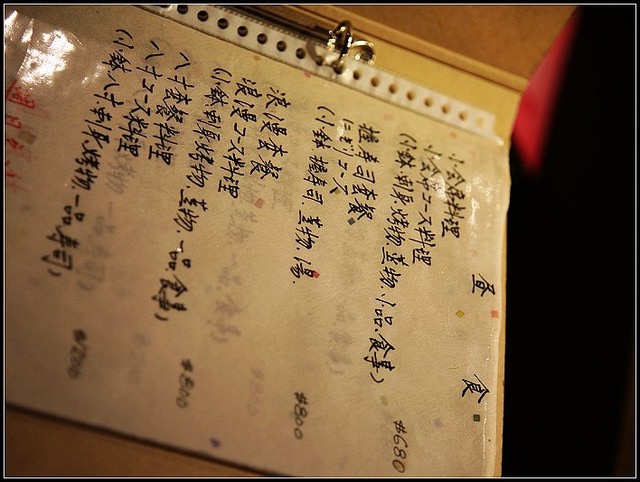 昼 食
小会席料理
小会席コース料理
(小鉢.刺身.烤物.煮物.小品.食事) #680
握寿司套餐
にぎりコース
(小鉢.握寿司.煮物.湯. #800
浪漫套餐
浪漫コース料理
(小鉢.刺身.烤物.煮物.一品.食事) #800
八寸套餐料理
八寸コース料理
(小鉢.八寸.刺身.烤物.一品.寿司)